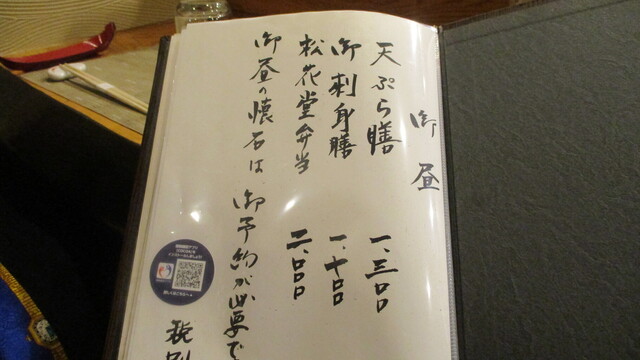 御昼
天ぷら膳 一、三〇〇
御刺身膳 一、七〇〇
松花堂弁当 二、〇〇〇
御昼の懐石は御予約が必要で
税別